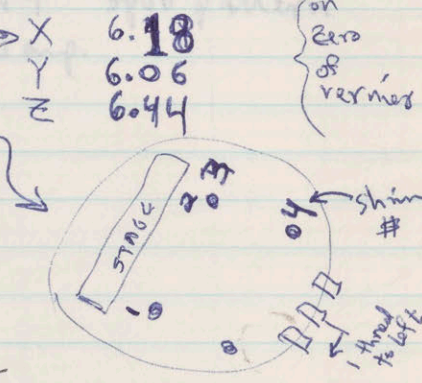 X 6.18
Y 6.06
Z 6.44
on
zero
of
vernier
STAGE
2
3
4
shim
#
1
1 thread
to left